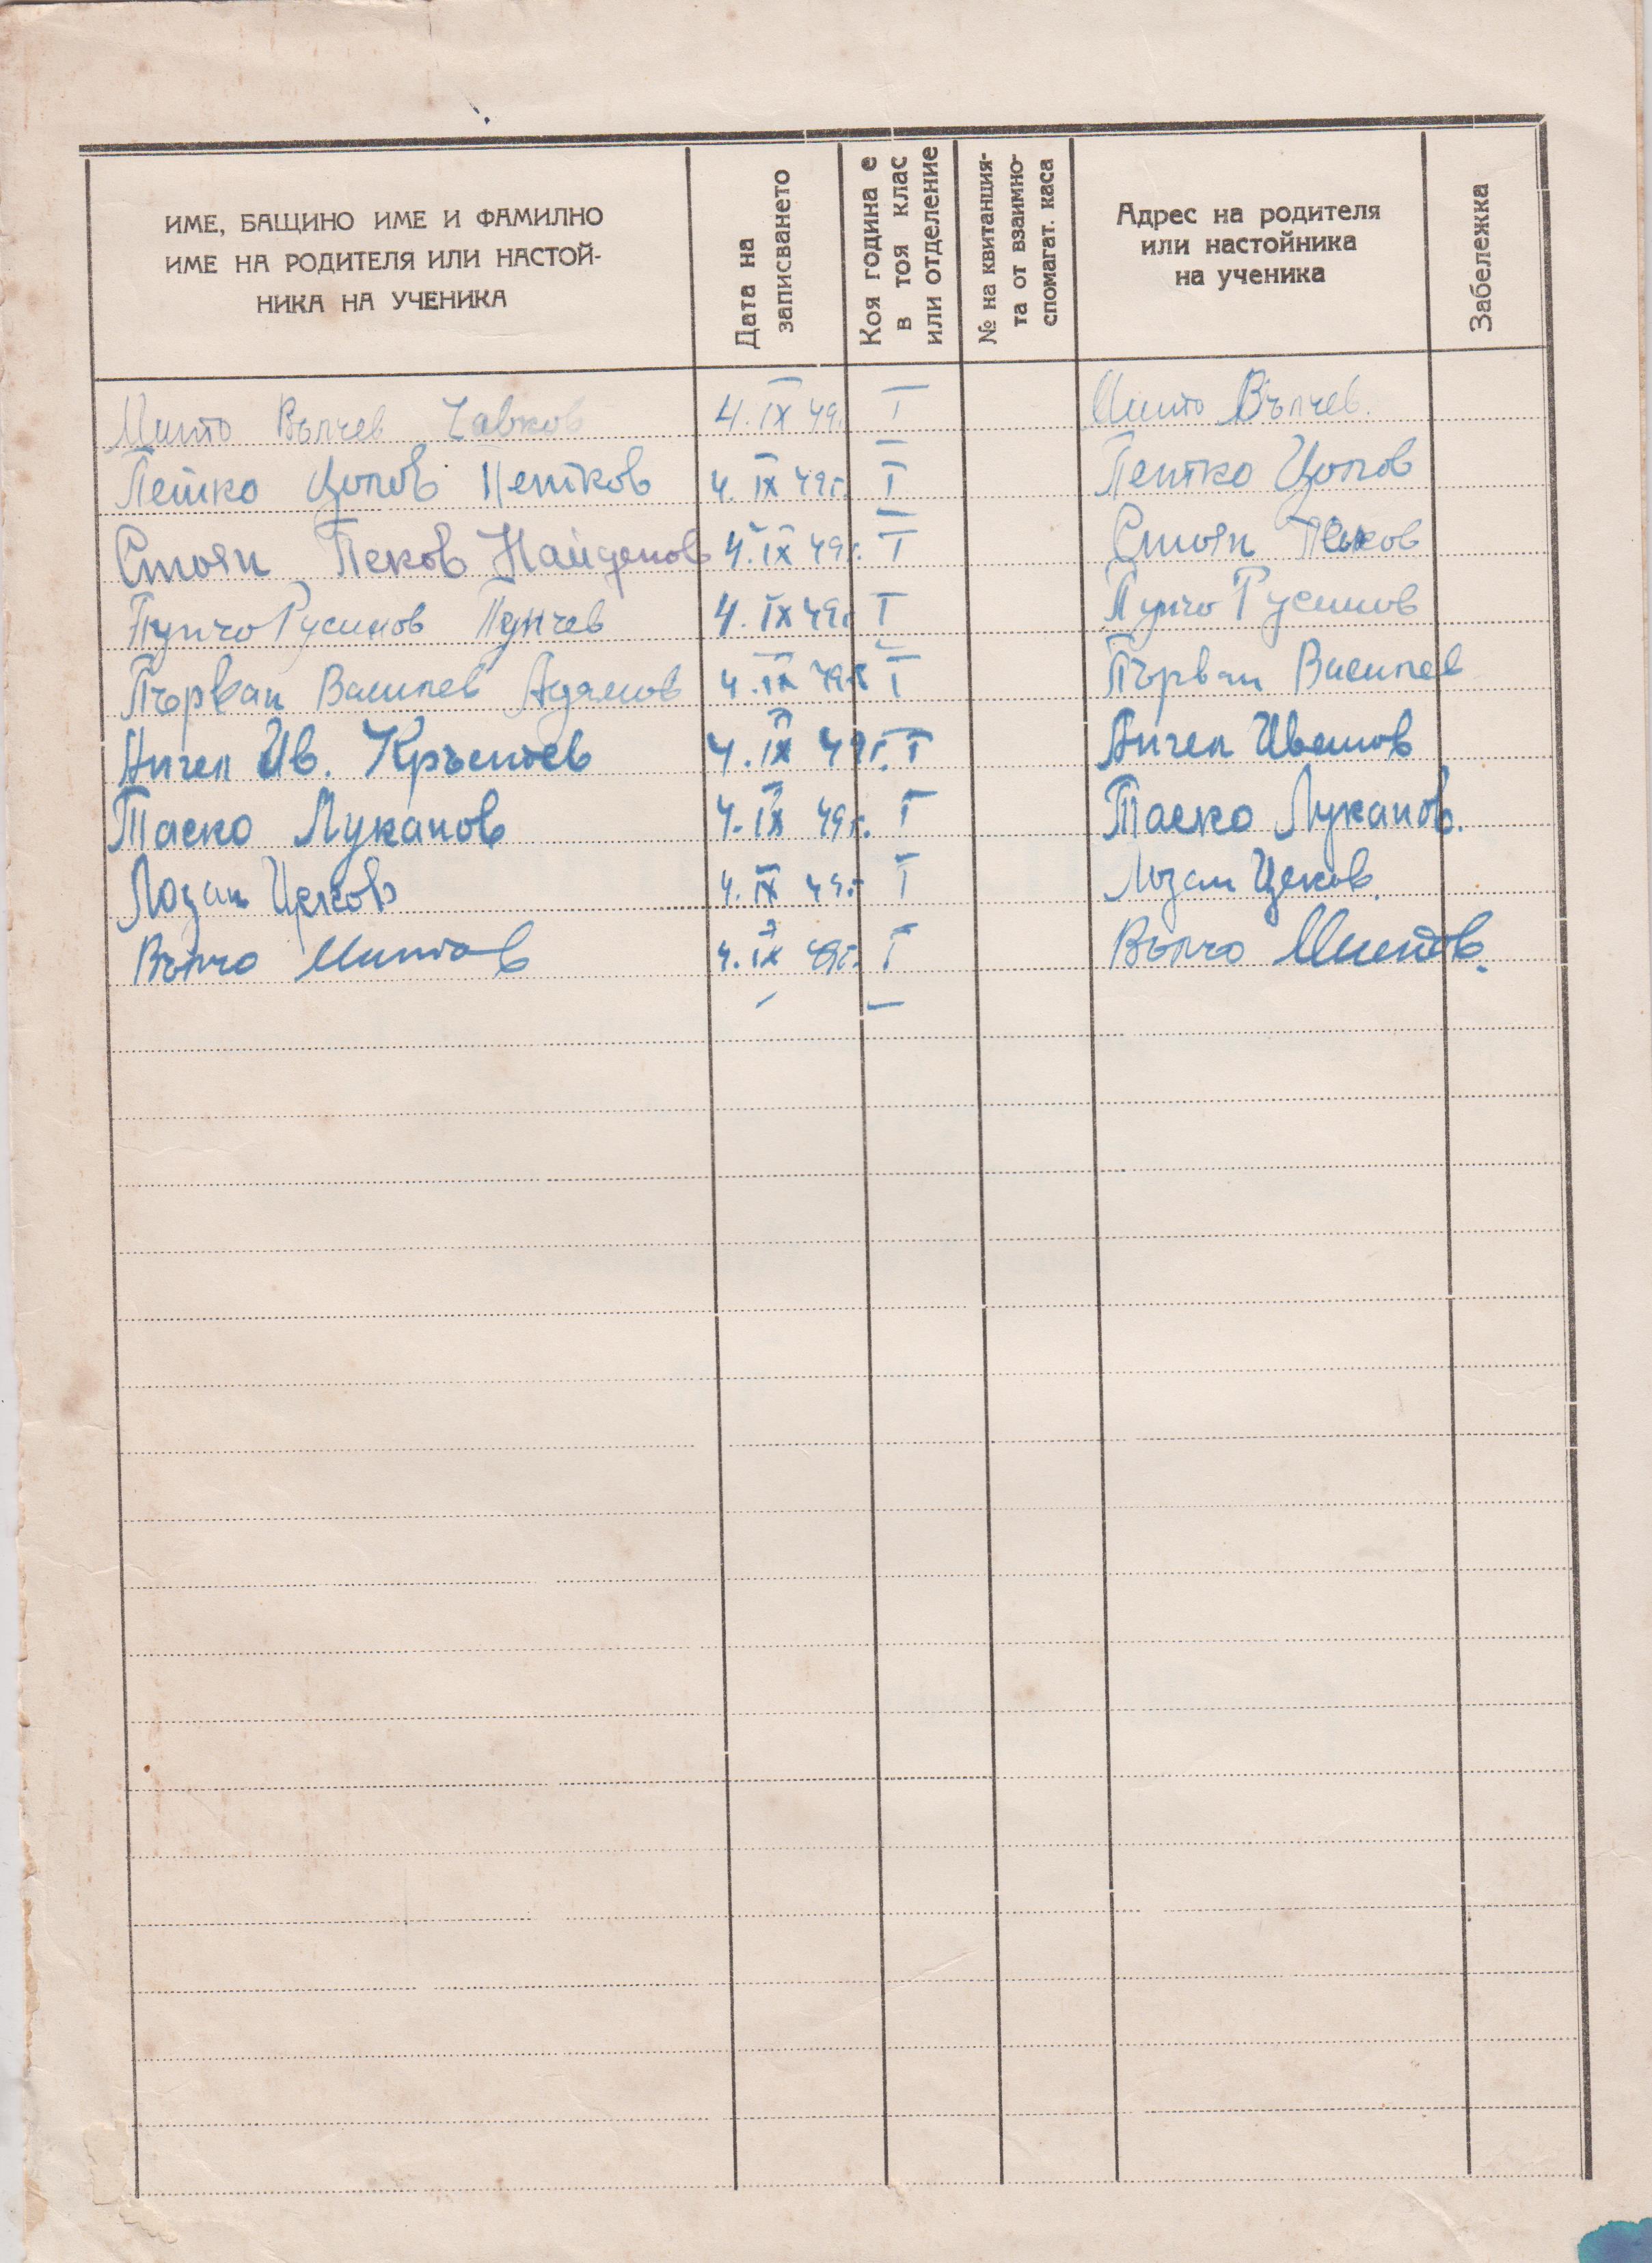 ИМЕ, БАЩИНО ИМЕ И ФАМИЛНО
ИМЕ НА РОДИТЕЛЯ ИЛИ НАСТОЙ-
НИКА НА УЧЕНИКА
Дата на
записването
Коя година е
в тоя клас
или отделение
№ на квитанция-
та от взаимно-
спомагат. каса
Адрес на родителя
или настойника
на ученика
Забележка
Минто Вълчев Чавков 4. IX 49. I Минто Вълчев.
Петко Цолов Петков 4. IX 49 г. I Петко Цолов
Стоян Пеков Найденов 4. IX 49 г. I Стоян Пеков
Пунчо Русинов Пунчев 4. IX 49 г. I Пунчо Русинов
Първан Василев Адамов 4. IX 49 г. I Първан Василев
Ангел Ив. Кръстев 4. IX 49 г. I Ангел Иванов
Таско Луканов 4. IX 49 г. I Таско Луканов.
Лозан Цеков 4. IX 49 г. I Лозан Цеков.
Вълчо Минтов 4. IX 49 г. I Вълчо Минтов.